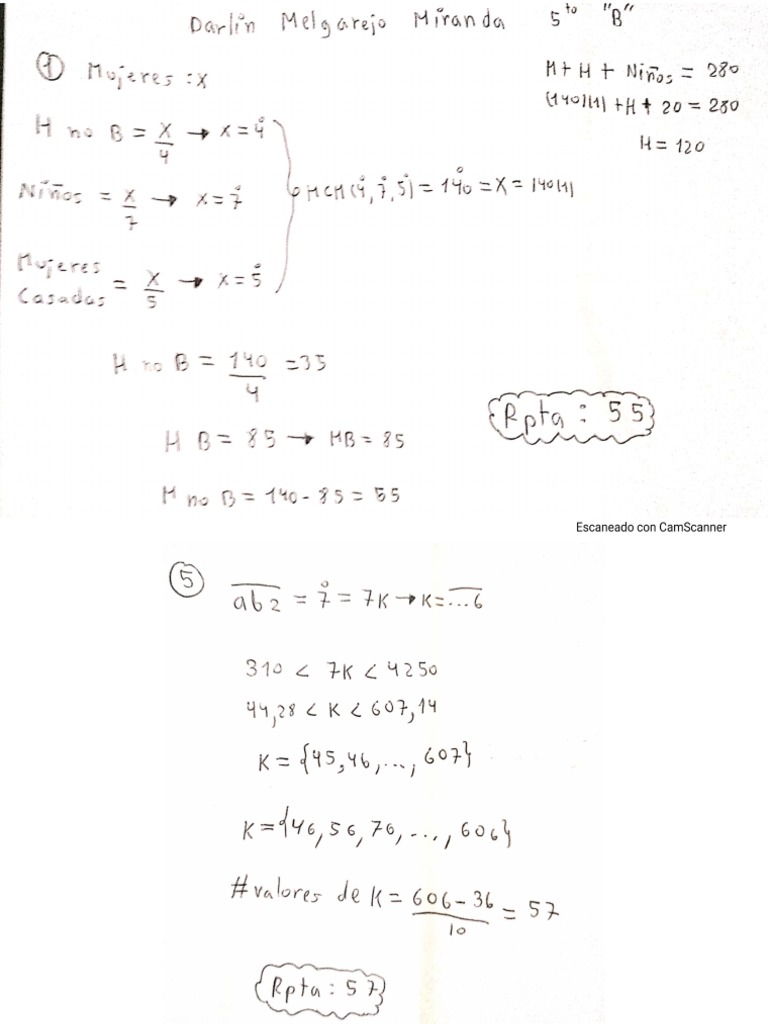 Darlin Melgarejo Miranda 5to "B"
① Mujeres : x
M + H + Niños = 280
(140)(1) + H + 20 = 280
H = 120
H no B = x/4 → x = 4̊
Niños = x/7 → x = 7̊
MCM(4̊, 7̊, 5̊) = 14̊0 = x = 140(1)
Mujeres
Casadas = x/5 → x = 5̊
H no B = 140/4 = 35
H B = 85 → MB = 85
M no B = 140 - 85 = 55
Rpta : 55
Escaneado con CamScanner
⑤ ab2 = 7̊ = 7K → K = ...6
310 < 7K < 4250
44,28 < K < 607,14
K = {45, 46, ..., 607}
K = {46, 56, 76, ..., 606}
# valores de K = 606 - 36/10 = 57
Rpta : 57